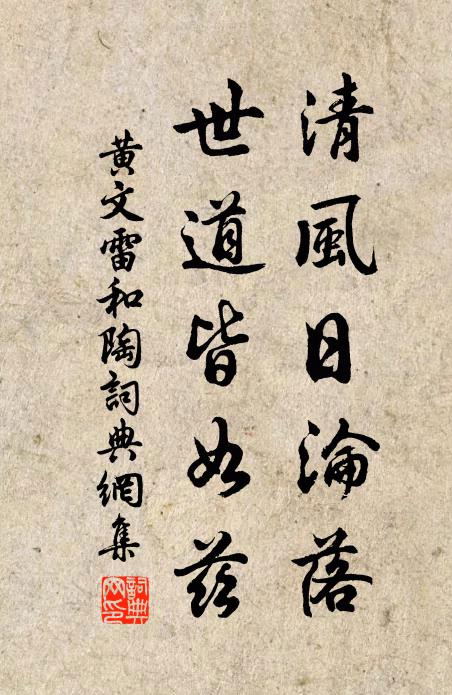 清風日淪落
世道皆如茲
黃文雷和陶詞典網集
詞典网印